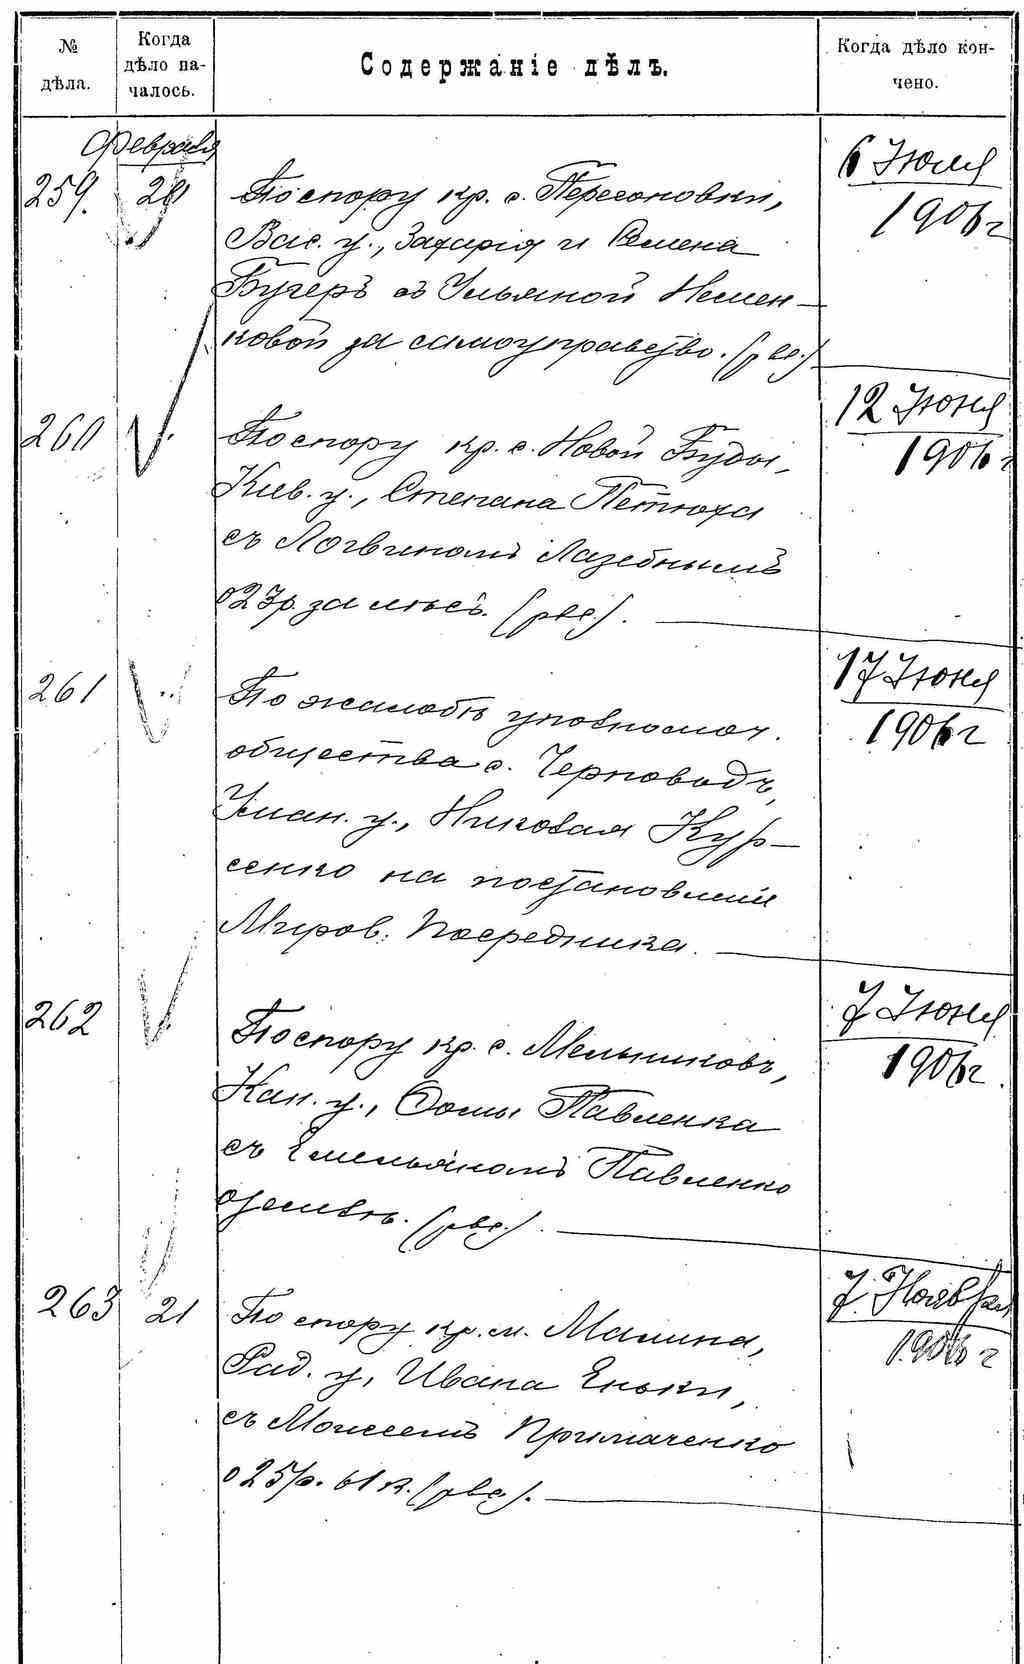 № дѣла.
Когда дѣло на-
чалось.
Содержаніе дѣлъ.
Когда дѣло кон-
чено.
Февраля
259. 20 По спору кр. с. Пересоновки,
Вас. у., Захарія и Семена
Бугеръ съ Ульяной Немен-
ковой за самоуправство. (рве.)
6 Іюля
1906 г
260 По спору кр. с. Новой Буды,
Кіев. у., Степана Петюха
съ Логвиномъ Лазебнымъ
о 23 р. за лѣсъ. (рве.).
12 Іюня
1906 г
261 По жалобѣ уполномоч.
общества с. Черповодъ,
Уман. у., Николая Кур-
сенко на постановленіе
Миров. Посредника.
17 Іюня
1906 г
262 По спору кр. с. Мельниковъ,
Кан. у., Ѳомы Павленка
съ Емельяномъ Павленко
о землѣ. (рве.).
7 Іюня
1906 г.
263 21 По спору кр. м. Малина,
Рад. у, Ивана Еньки,
съ Моисеемъ Примаченко
о 25 р. 61 к. (рве.).
7. Ноября
1906 г